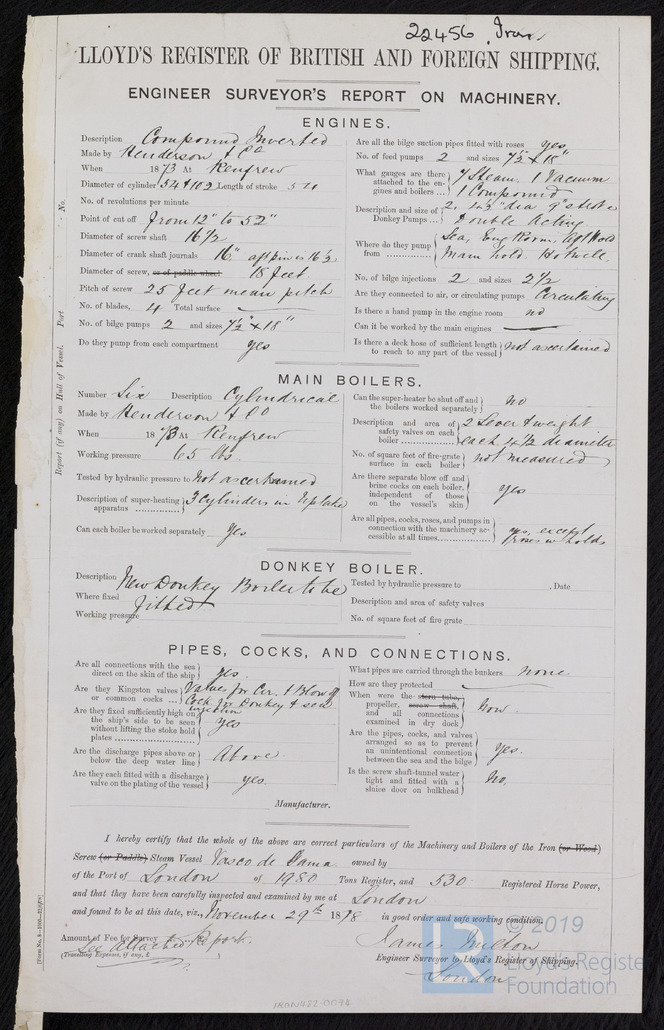 22456 Iron
LLOYD'S REGISTER OF BRITISH AND FOREIGN SHIPPING.
ENGINEER SURVEYOR'S REPORT ON MACHINERY.
ENGINES.
Description Compound Inverted
Made by Henderson & Co
When 1873 At Renfrew
Diameter of cylinder 54 & 102 Length of stroke 54
No. of revolutions per minute
Point of cut off from 12" to 52"
Diameter of screw shaft 16 1/2
Diameter of crank shaft journals 16" aft pin is 16 1/2
Diameter of screw, or of paddle wheel 18 feet
Pitch of screw 25 feet mean pitch
No. of blades, 4 Total surface
No. of bilge pumps 2 and sizes 7 1/2" x 18"
Do they pump from each compartment yes
Are all the bilge suction pipes fitted with roses yes
No. of feed pumps 2 and sizes 7 1/2 x 18"
What gauges are there attached to the engines and boilers ... 7 Steam. 1 Vacuum
1 Compound
Description and size of Donkey Pumps ... 2. 4 1/2" dia 9" stroke
Double Acting
Where do they pump from Sea, Eng Room, Aft Hold
Main hold. Hotwell.
No. of bilge injections 2 and sizes 2 1/2
Are they connected to air, or circulating pumps Circulating
Is there a hand pump in the engine room no
Can it be worked by the main engines
Is there a deck hose of sufficient length to reach to any part of the vessel not ascertained
Report (if any) on Hull of Vessel. Port No.
MAIN BOILERS.
Number Six Description Cylindrical
Made by Henderson & Co
When 1873 At Renfrew
Working pressure 65 lbs
Tested by hydraulic pressure to Not ascertained
Description of super-heating apparatus 3 Cylinders in Uptake
Can each boiler be worked separately Yes
Can the super-heater be shut off and the boilers worked separately no
Description and area of safety valves on each boiler 2 Lever & weight
each 4 1/2 diameter
No. of square feet of fire-grate surface in each boiler not measured
Are there separate blow off and brine cocks on each boiler, independent of those on the vessel's skin yes
Are all pipes, cocks, roses, and pumps in connection with the machinery accessible at all times yes, except
roses in holds
DONKEY BOILER.
Description New Donkey Boiler to be
Where fixed fitted
Working pressure
Tested by hydraulic pressure to , Date
Description and area of safety valves
No. of square feet of fire grate
PIPES, COCKS, AND CONNECTIONS.
Are all connections with the sea direct on the skin of the ship yes.
Are they Kingston valves or common cocks ... Valves for Cir. & Blow off
Cock for Donkey & sea
injection
Are they fixed sufficiently high on the ship's side to be seen without lifting the stoke hold plates yes
Are the discharge pipes above or below the deep water line Above
Are they each fitted with a discharge valve on the plating of the vessel yes
What pipes are carried through the bunkers none.
How are they protected
When were the stern tube, propeller, screw shaft, and all connections examined in dry dock Now.
Are the pipes, cocks, and valves arranged so as to prevent an unintentional connection between the sea and the bilge Yes.
Is the screw shaft-tunnel water tight and fitted with a sluice door on bulkhead No.
Manufacturer.
I hereby certify that the whole of the above are correct particulars of the Machinery and Boilers of the Iron (or Wood)
Screw (or Paddle) Steam Vessel Vasco de Gama owned by
of the Port of London of 1980 Tons Register, and 530 Registered Horse Power,
and that they have been carefully inspected and examined by me at London
and found to be at this date, viz., November 29th 1878 in good order and safe working condition.
Amount of Fee for Survey
See attached Report.
(Travelling Expenses, if any, £
James Milton
Engineer Surveyor to Lloyd's Register of Shipping.
London
IRON482-0098
© 2019
LR Lloyd's Registe
Foundation